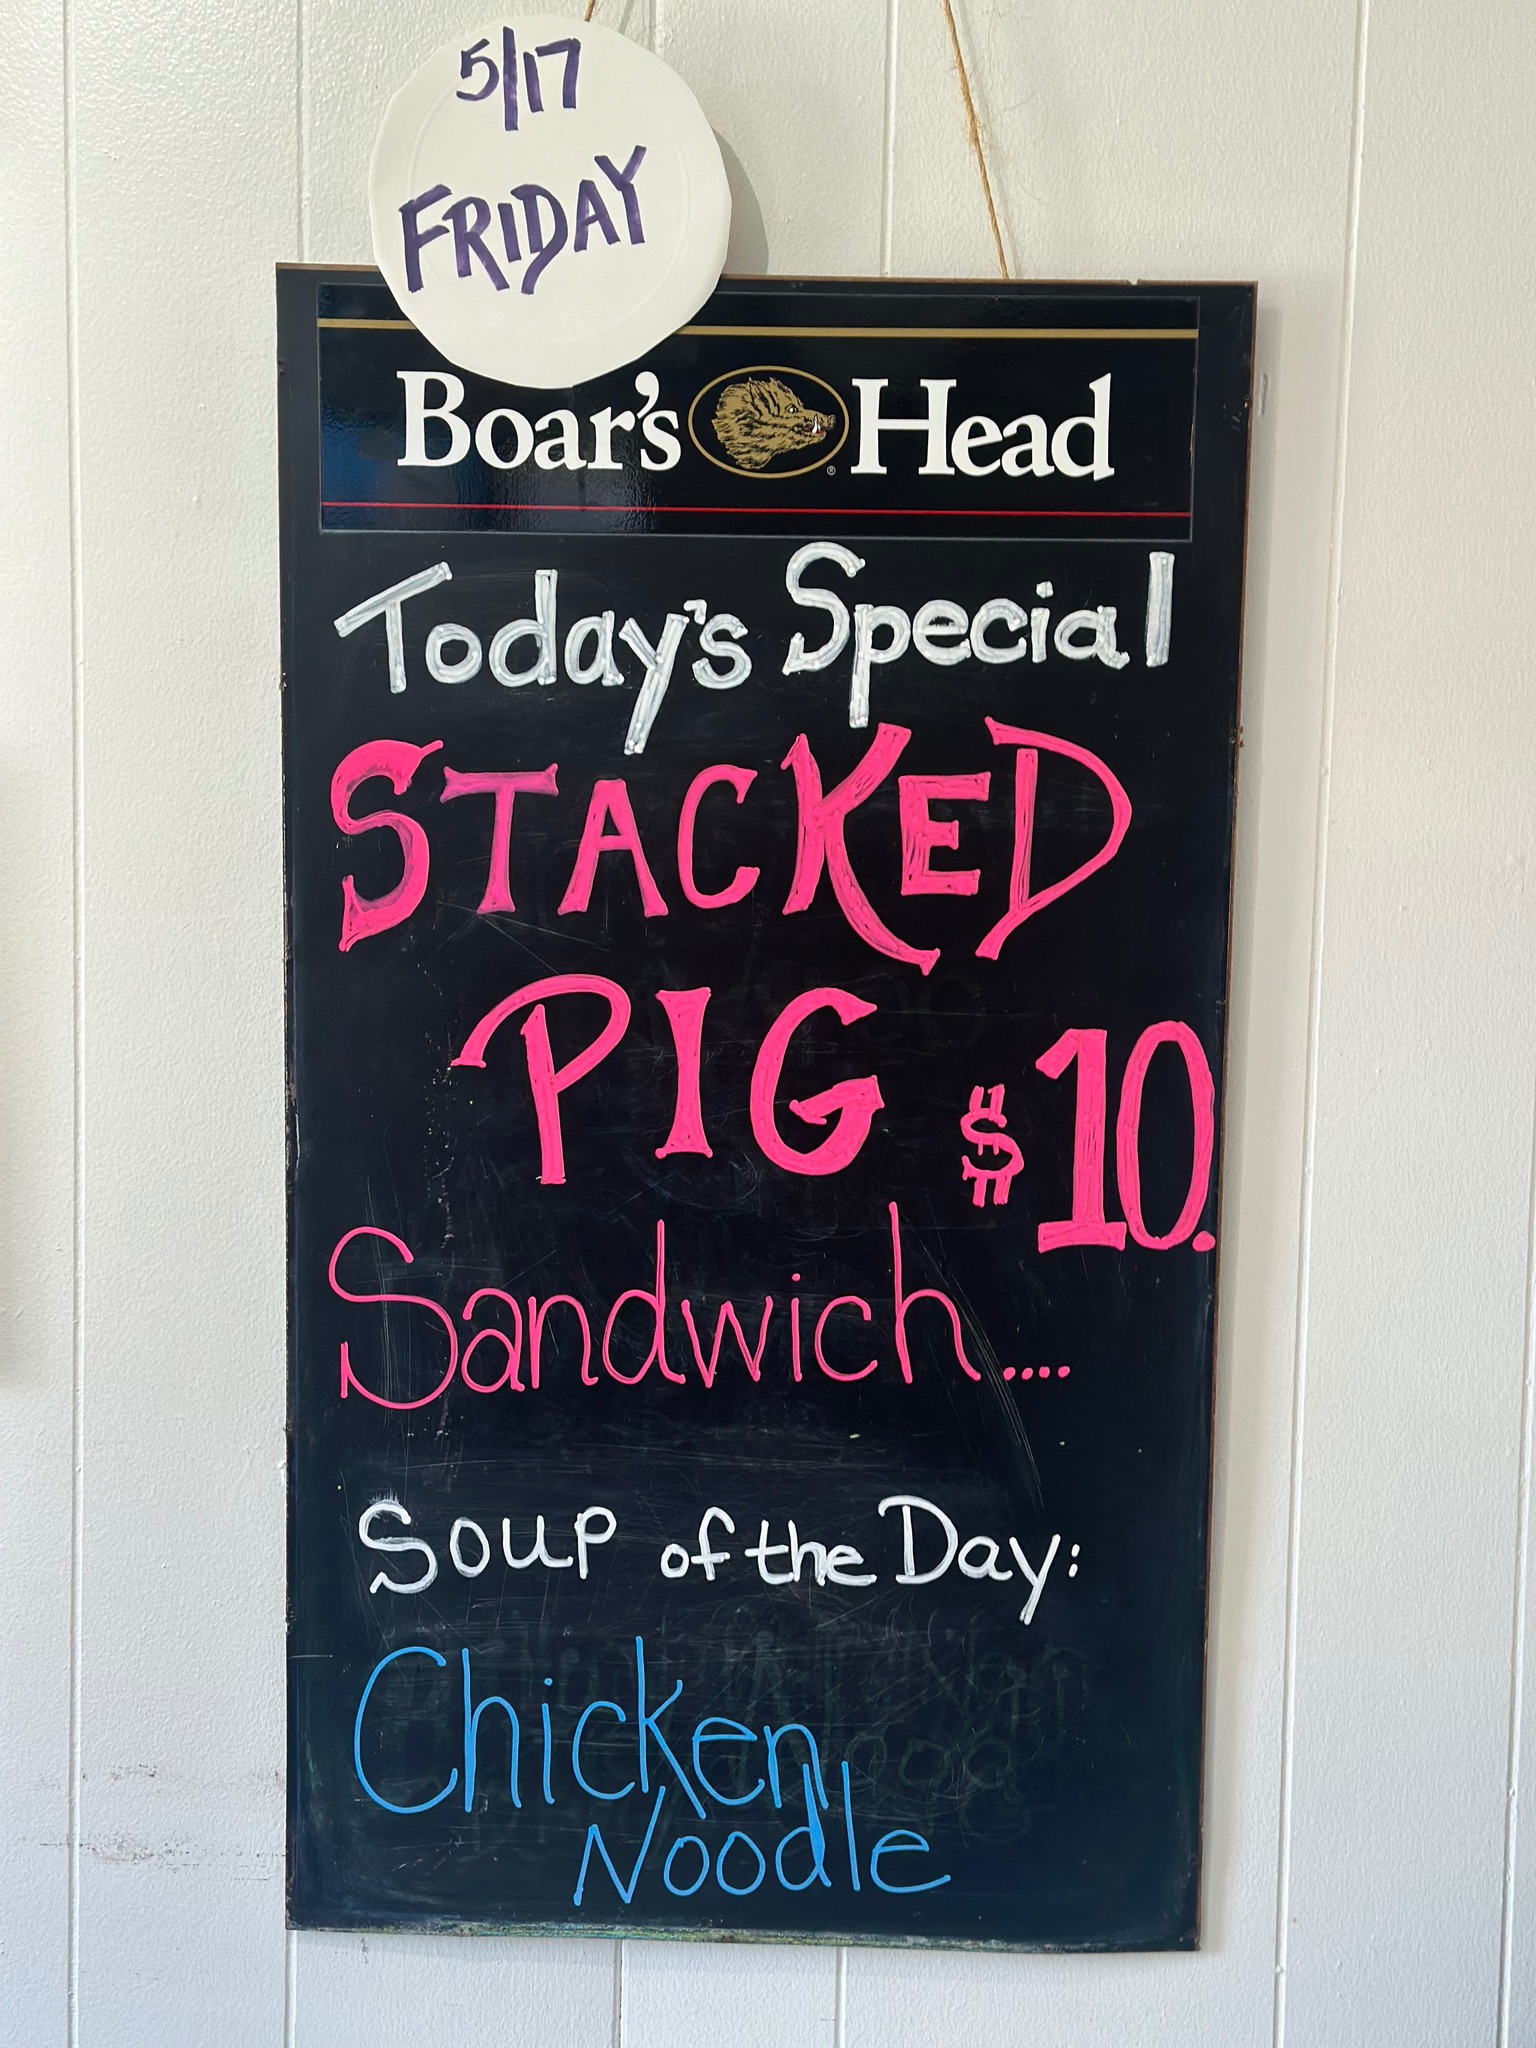 5/17
FRIDAY
Boar's Head
Today's Special
STACKED
PIG $10.
Sandwich....
Soup of the Day:
Chicken
Noodle